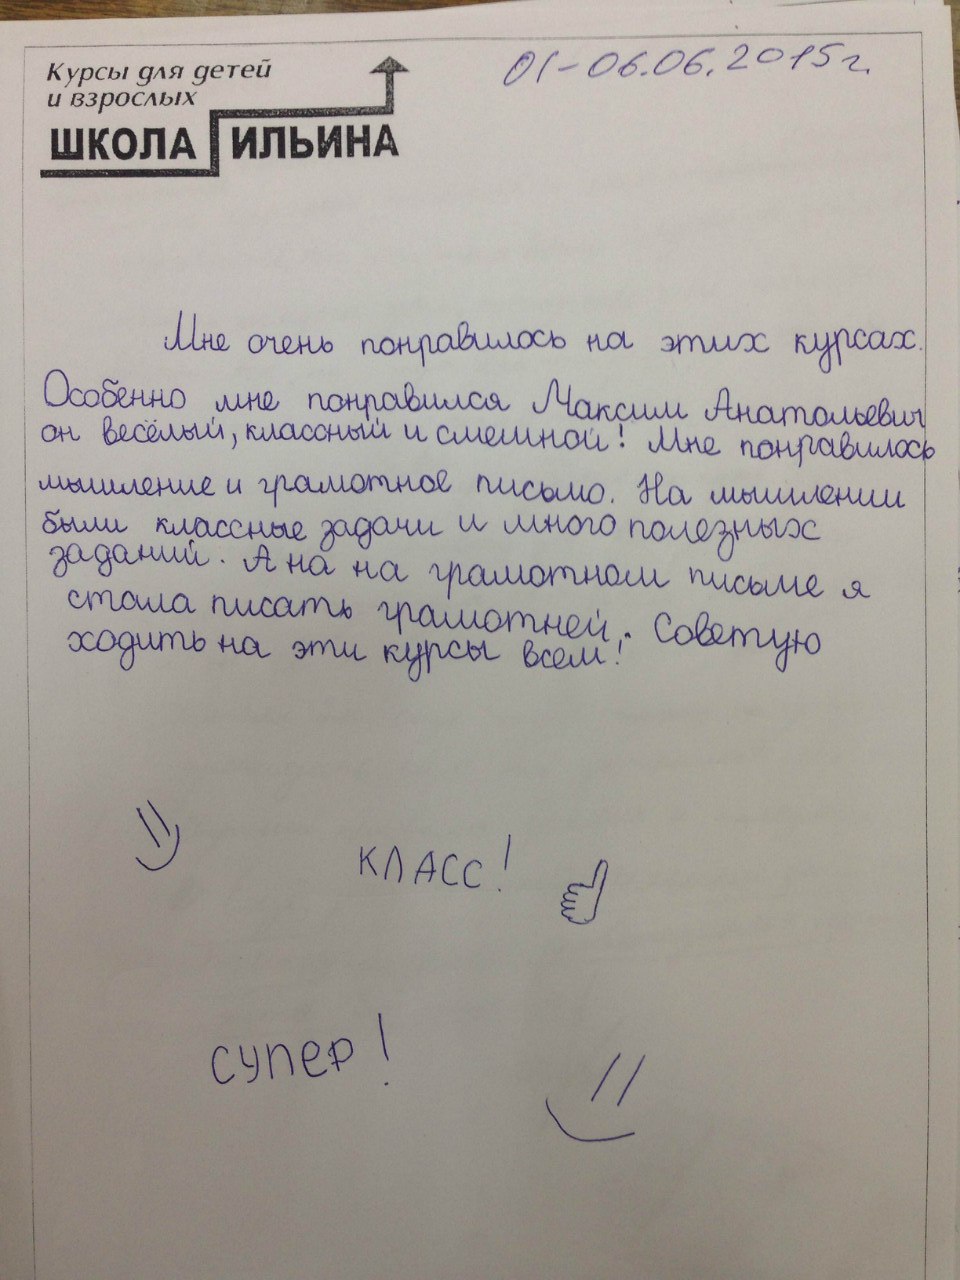 Курсы для детей
и взрослых
ШКОЛА ИЛЬИНА
01-06.06.2015г.
Мне очень понравилось на этих курсах.
Особенно мне понравился Максим Анатольевич
он весёлый, классный и смешной! Мне понравилось
мышление и грамотное письмо. На мышлении
были классные задачи и много полезных
заданий. А на на грамотном письме я
стала писать грамотней. Советую
ходить на эти курсы всем!
КЛАСС!
СУПЕР!